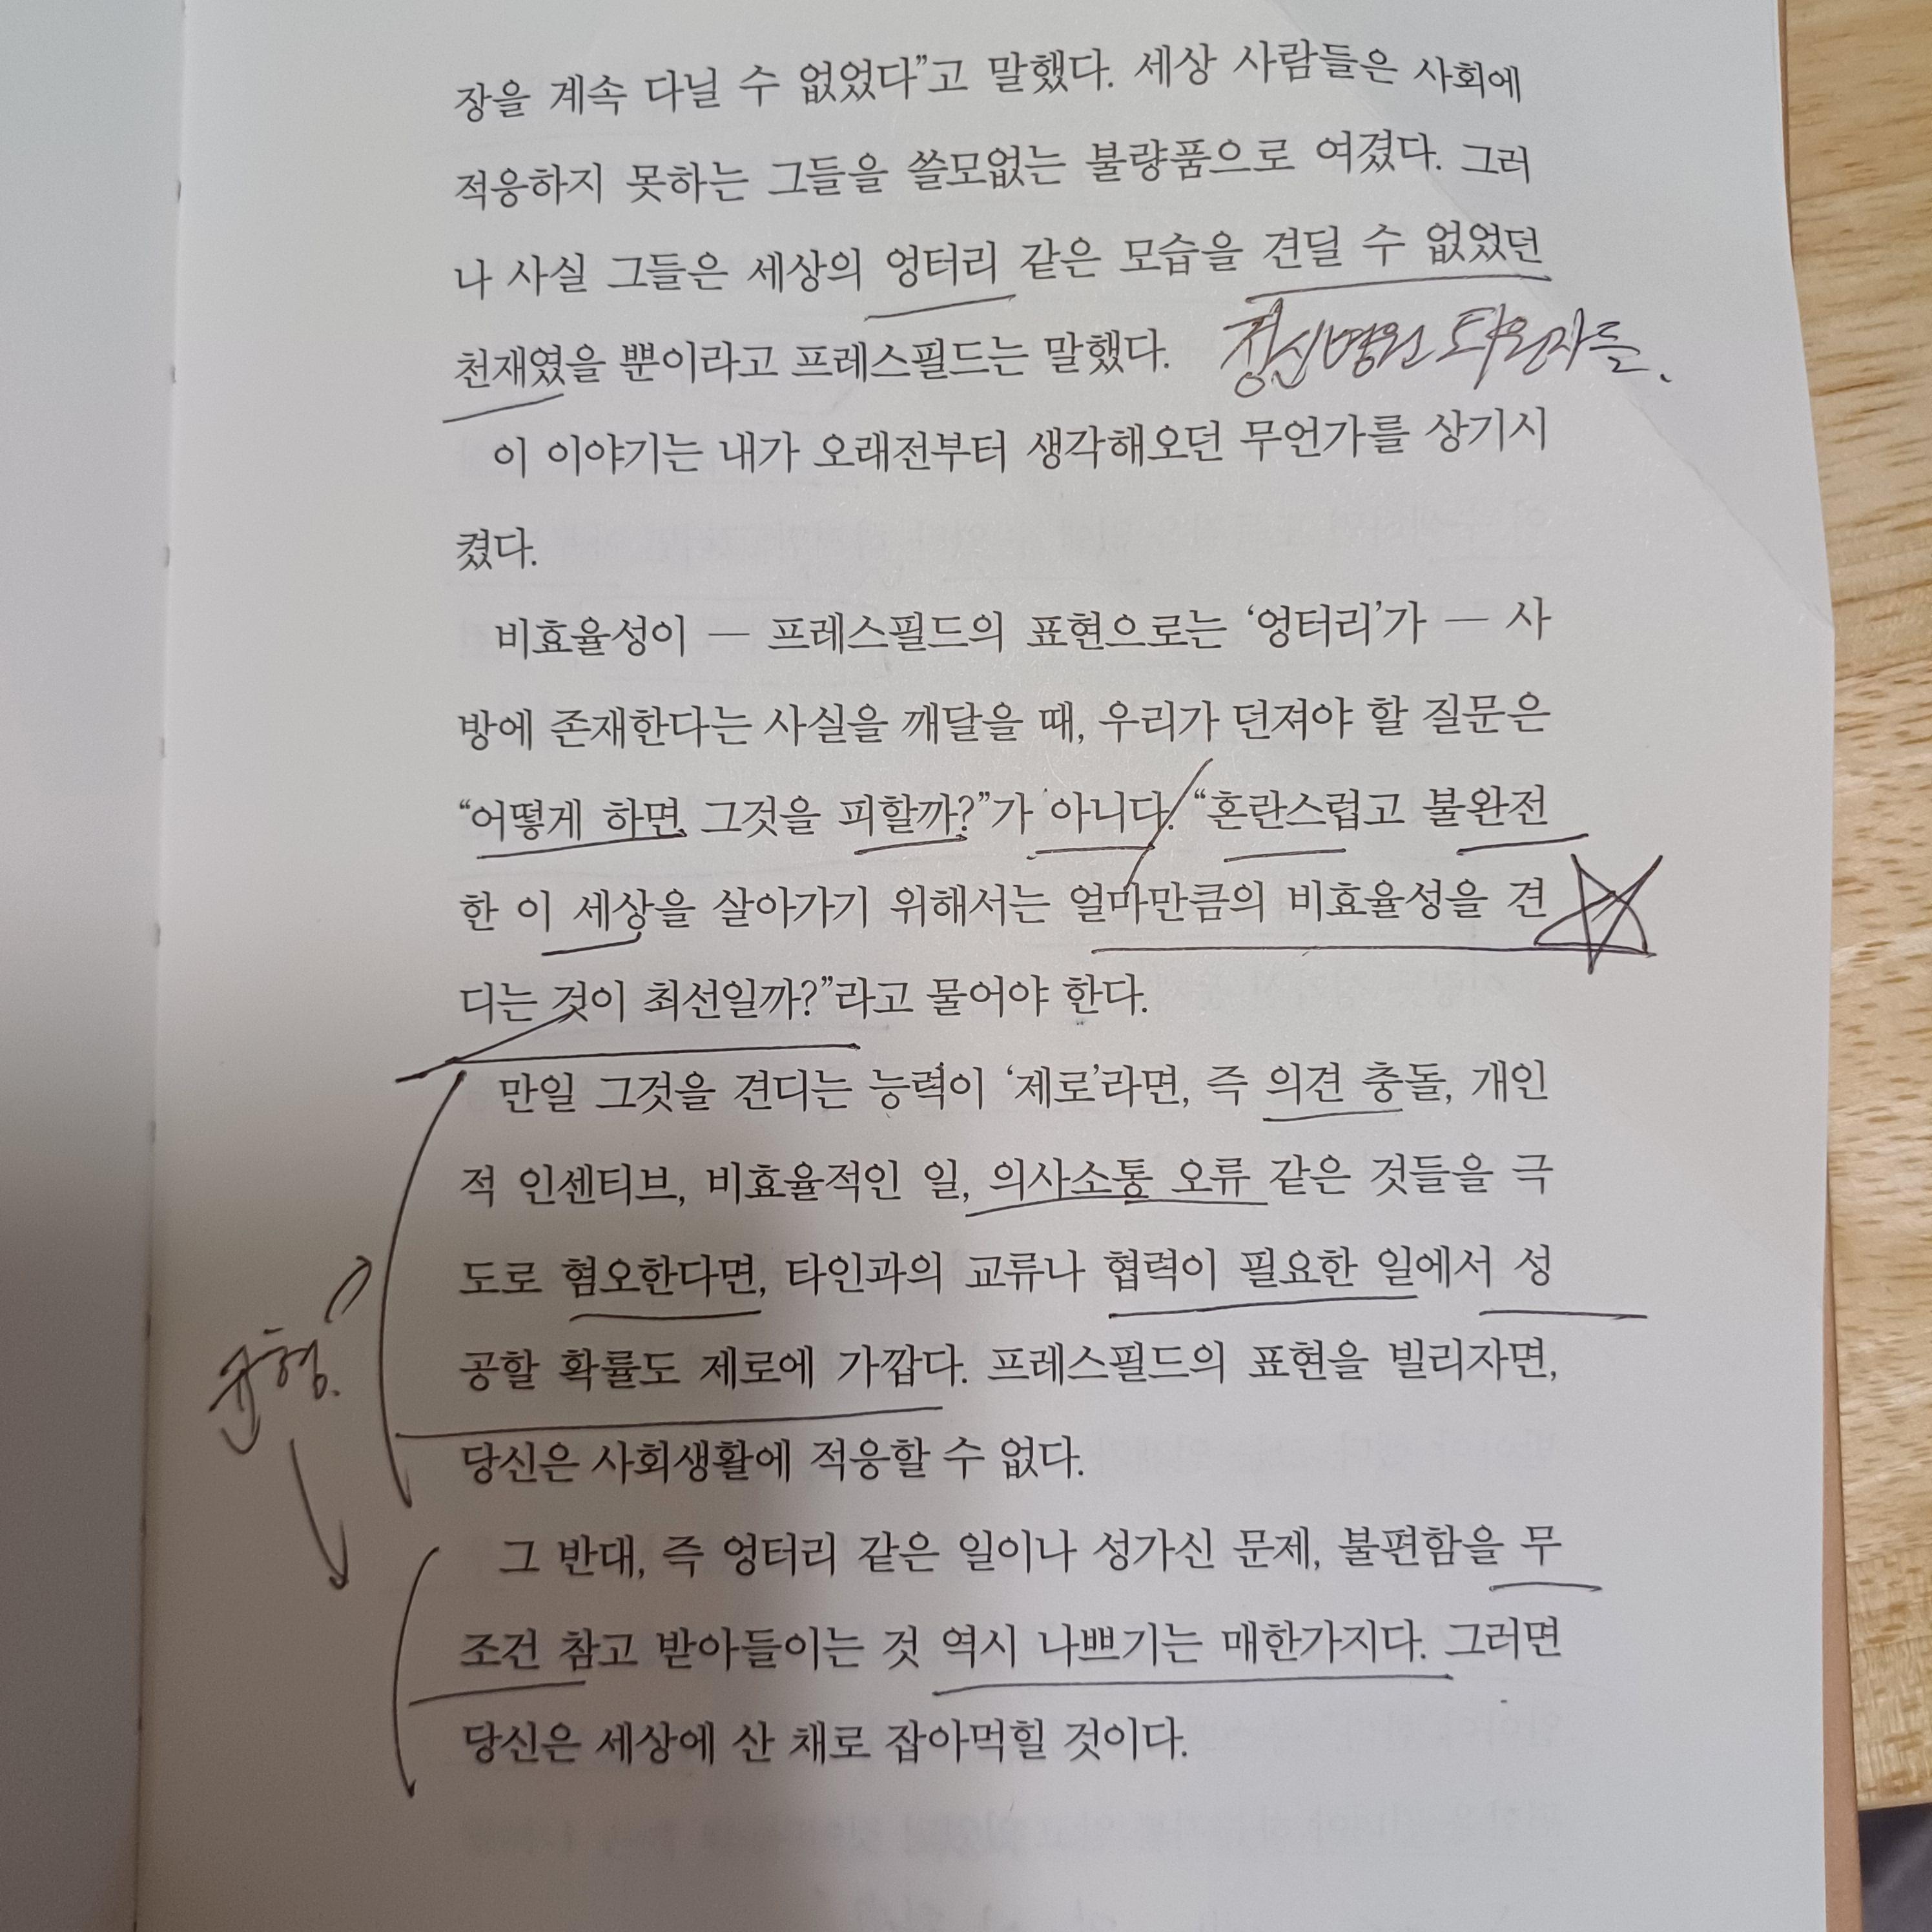 장을 계속 다닐 수 없었다”고 말했다. 세상 사람들은 사회에
적응하지 못하는 그들을 쓸모없는 불량품으로 여겼다. 그러
나 사실 그들은 세상의 엉터리 같은 모습을 견딜 수 없었던
천재였을 뿐이라고 프레스필드는 말했다.
정신병원 퇴원자들.
이 이야기는 내가 오래전부터 생각해오던 무언가를 상기시
켰다.
비효율성이 — 프레스필드의 표현으로는 ‘엉터리’가 — 사
방에 존재한다는 사실을 깨달을 때, 우리가 던져야 할 질문은
“어떻게 하면 그것을 피할까?”가 아니다. “혼란스럽고 불완전
한 이 세상을 살아가기 위해서는 얼마만큼의 비효율성을 견
디는 것이 최선일까?”라고 물어야 한다.
만일 그것을 견디는 능력이 ‘제로’라면, 즉 의견 충돌, 개인
적 인센티브, 비효율적인 일, 의사소통 오류 같은 것들을 극
도로 혐오한다면, 타인과의 교류나 협력이 필요한 일에서 성
공할 확률도 제로에 가깝다. 프레스필드의 표현을 빌리자면,
당신은 사회생활에 적응할 수 없다.
균형.
그 반대, 즉 엉터리 같은 일이나 성가신 문제, 불편함을 무
조건 참고 받아들이는 것 역시 나쁘기는 매한가지다. 그러면
당신은 세상에 산 채로 잡아먹힐 것이다.